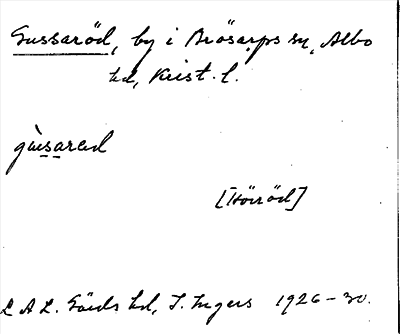 Gussaröd, by i Brösarps sn, Albo
hd, Krist. l.
gùsarad
[Hörröd]
L A L. Gärds hd, I. Ingers 1926-30.